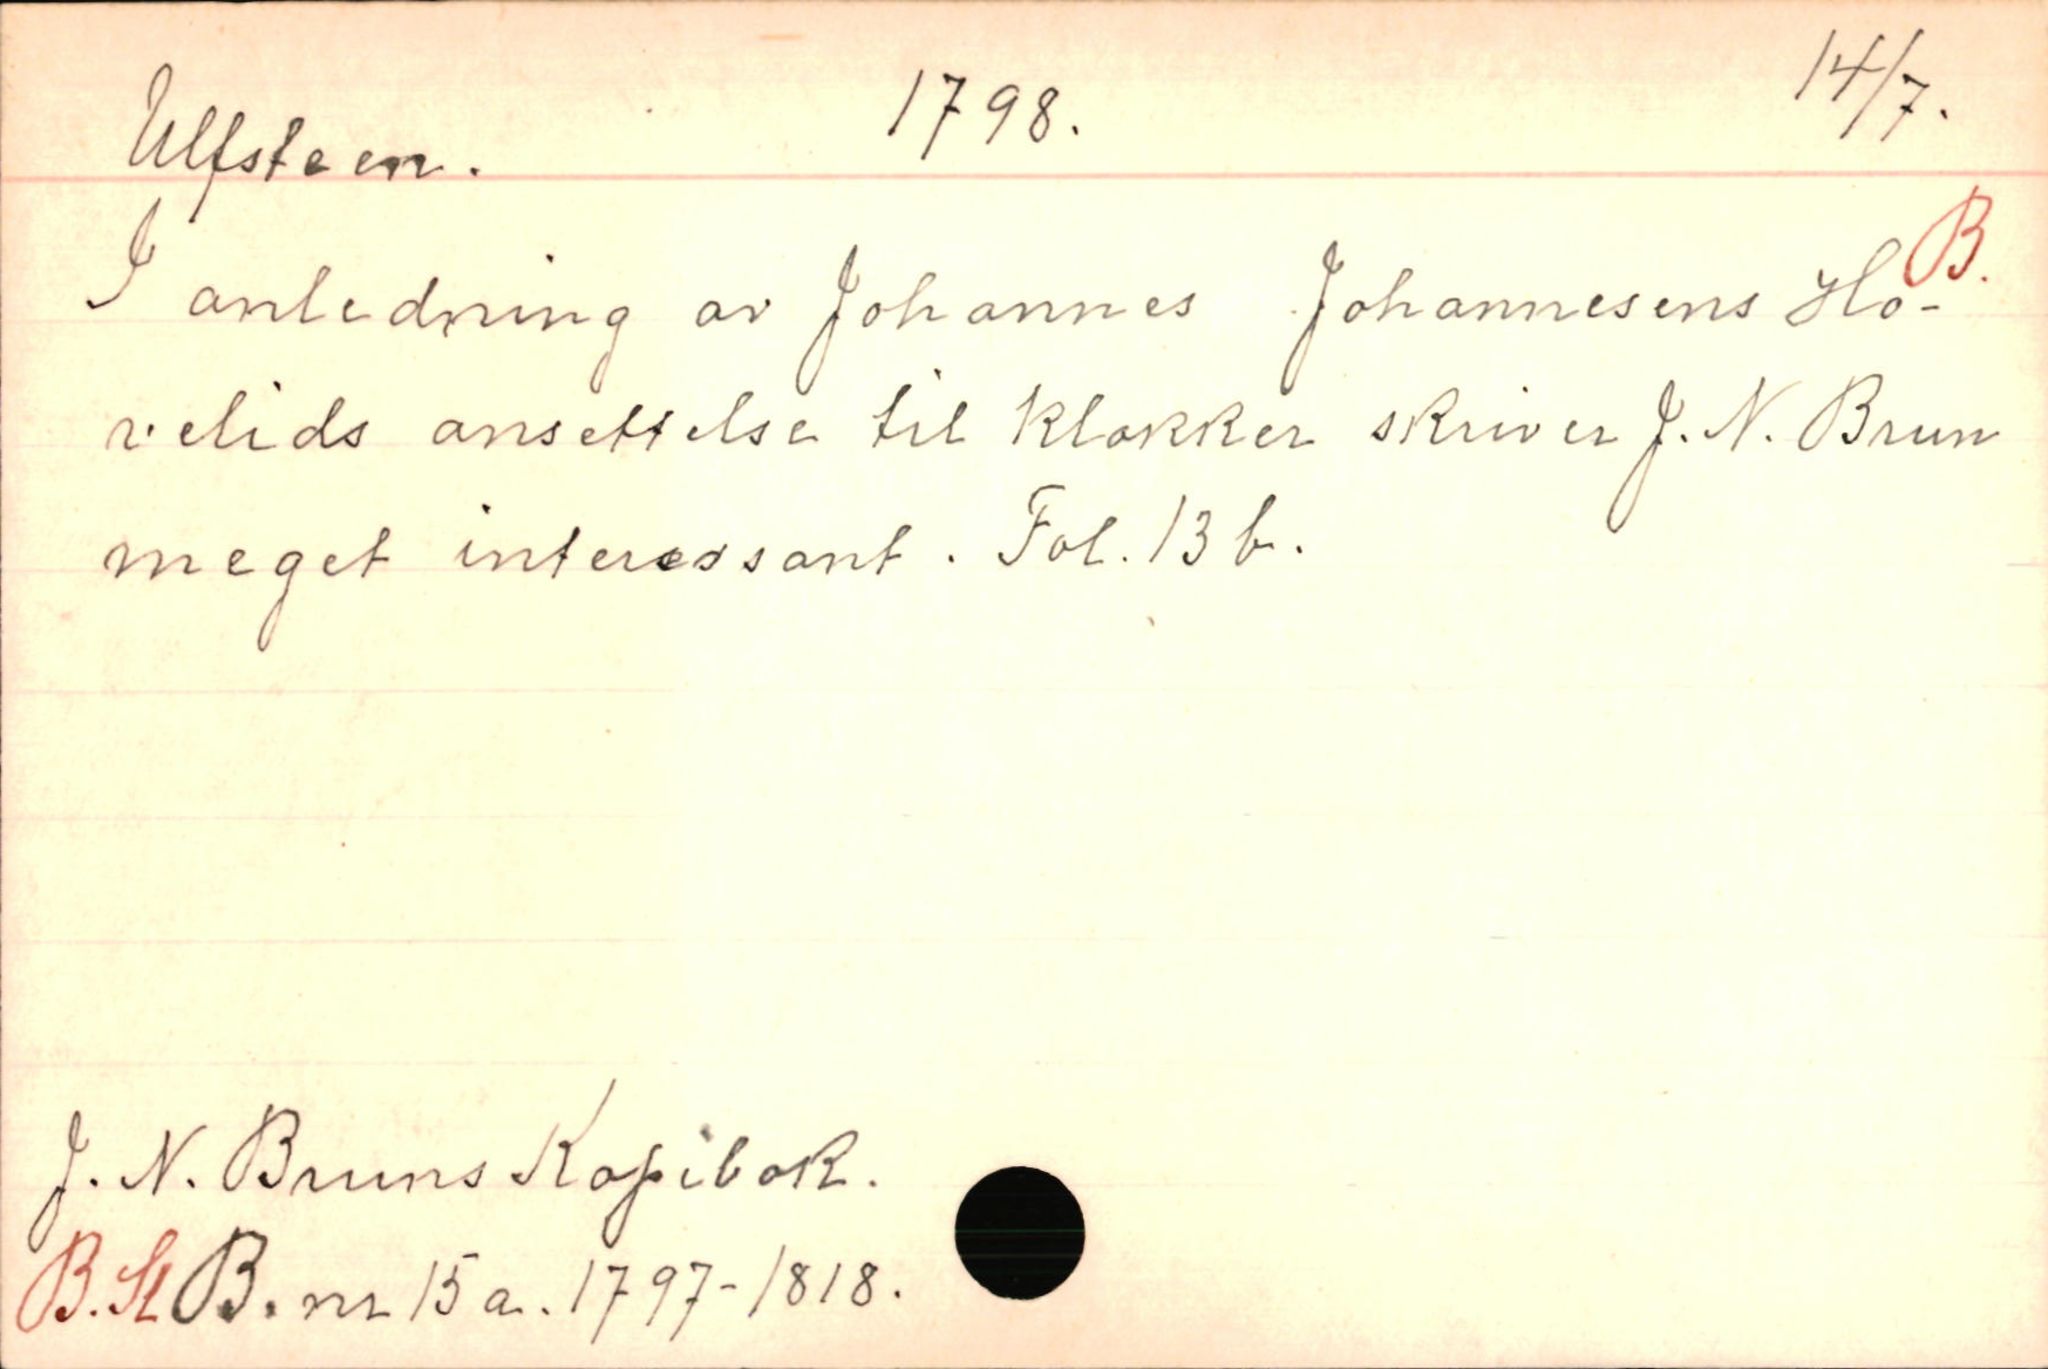 Ulfsteen. 1798. 14/7.
B.
I anledning av Johannes Johannesens Ho-
velids ansettelse til klokker skriver J. N. Brun
meget interessant. Fol. 13 b.
J. N. Bruns Kopibok.
B. St B. nr 15 a. 1797-1818.